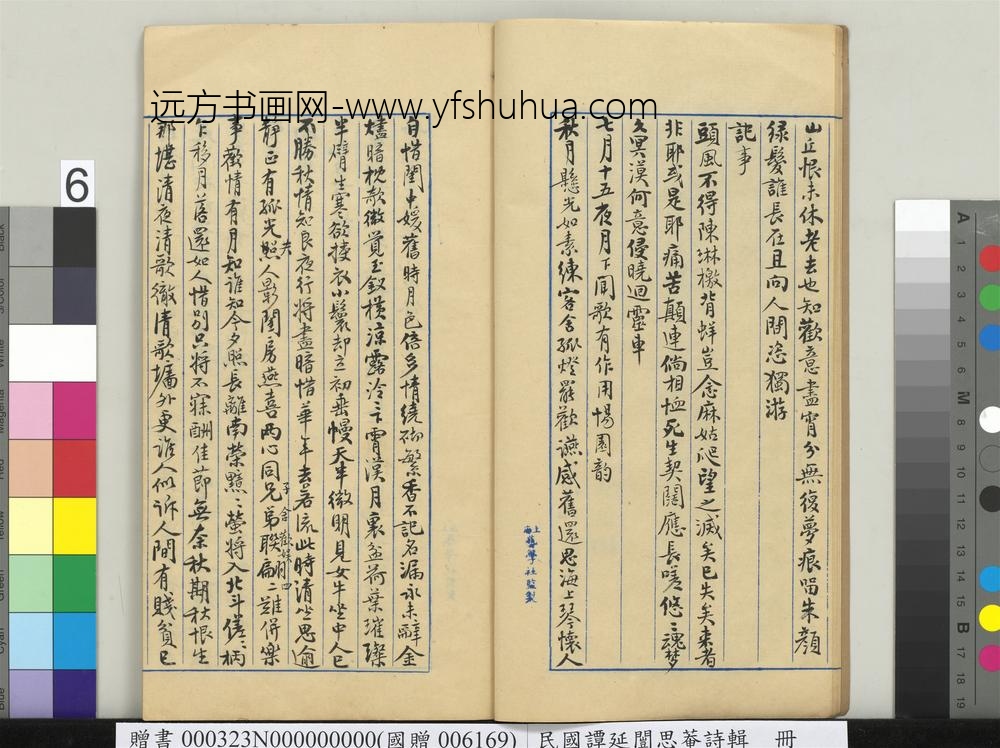 远方书画网-www.yfshuhua.com
山丘恨未休老去也知歡意盡宵分無復夢痕留朱顏
綠髮誰長在且向人間恣獨游
記事
頭風不得陳琳檄背蛘豈念麻姑爬望之滅矣已失矣來者
非耶或是耶痛苦顛連倘相恤死生契闊應長嗟悠〻魂夢
久冥漠何意侵曉迴靈車
七月十五夜月下聞歌有作用惕園韵
秋月懸光如素練客舍孤燈罷歡讌感舊還思海上琴懷人
上海藝學社監製
自惜閨中媛舊時月色倍多情繞砌繁香不記名漏永未辭金
燼暗枕欹微覺玉釵橫涼露泠〻下霄漢月裏盆荷葉璀璨
半臂生寒欲授衣小鬟却立初垂幔天半微明見女牛坐中人已
不勝秋情知良夜行將盡暗惜華年去若流此時清坐思逾
靜正有孤光照人影閨房燕喜兩心同兄弟聯扁二難併樂
事歡情有月知誰知今夕照長離南榮點〻螢將入北斗磋〻柄
乍移月落還如人惜別只將不寐酬佳節無奈秋期秋恨生
那堪清夜清歌徹清歌墻外更誰人似訴人間有賤貧已
6
贈書 000323N000000000(國贈 006169) 民國譚延闓思菴詩輯 冊